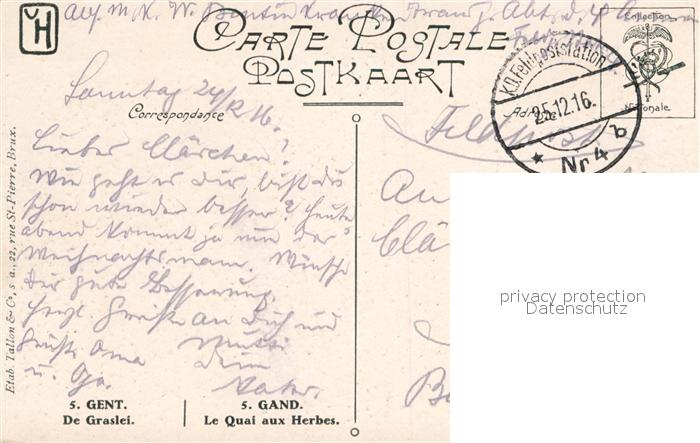 CARTE POSTALE
POSTKAART
Collection
Nationale
K.D. Feldpoststation
25.12.16.
* Nr 4 b
Correspondance
Adresse
Sonntag 24/12 16.
Feldpost
Lieber Clärchen!
Wie geht es dir, bist du
schon wieder besser? Heute
abend kommt ja nun der
Weihnachtsmann. Wünsche
dir gute Besserung.
Herzl. Grüße an Dich und
Grüße Oma Mutti
u. Dein
Vater.
An
Clä
privacy protection
Datenschutz
Etab. Tallon & Cº, s. a., 22, rue St-Pierre, Brux.
5. GENT.
De Graslei.
5. GAND.
Le Quai aux Herbes.